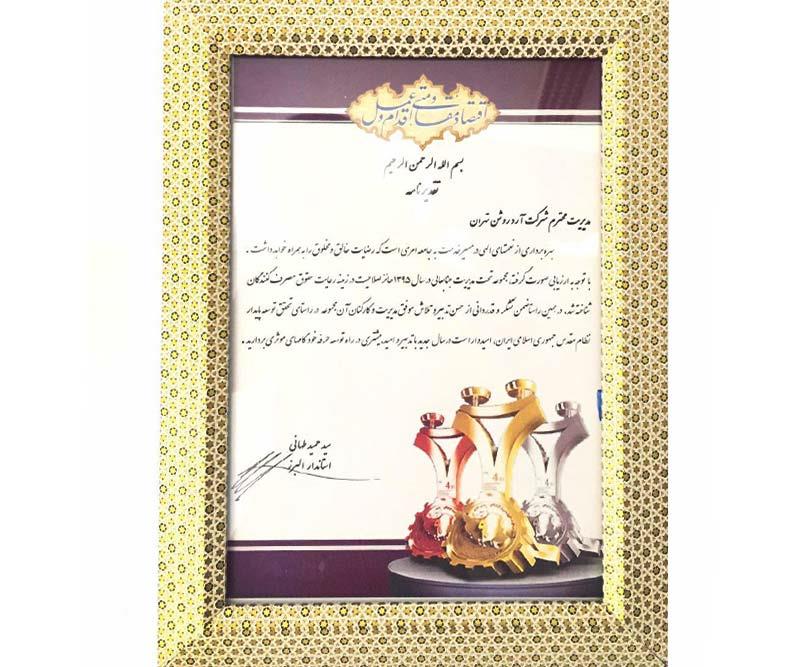 اقتصاد مقاومتی اقدام و عمل
بسم الله الرحمن الرحیم
تقدیرنامه
مدیریت محترم شرکت آرد روشن تهران
بهره برداری از نعمتهای الهی در مسیر خدمت به جامعه امری است که رضایت خالق و مخلوق را به همراه خواهد داشت .
با توجه به ارزیابی صورت گرفته، مجموعه تحت مدیریت جنابعالی در سال ۱۳۹۵ حائز صلاحیت در زمینه رعایت حقوق مصرف کنندگان
شناخته شد، در همین راستا ضمن تشکر و قدردانی از حسن تدبیر و تلاش موفق مدیریت و کارکنان آن مجموعه در راستای تحقق توسعه پایدار
نظام مقدس جمهوری اسلامی ایران، امیدوار است در سال جدید با تدبیر و امید، بیشتری در راه توسعه حرفه خود گامهای موثری بردارید .
سید حمید طهائی
استاندار البرز